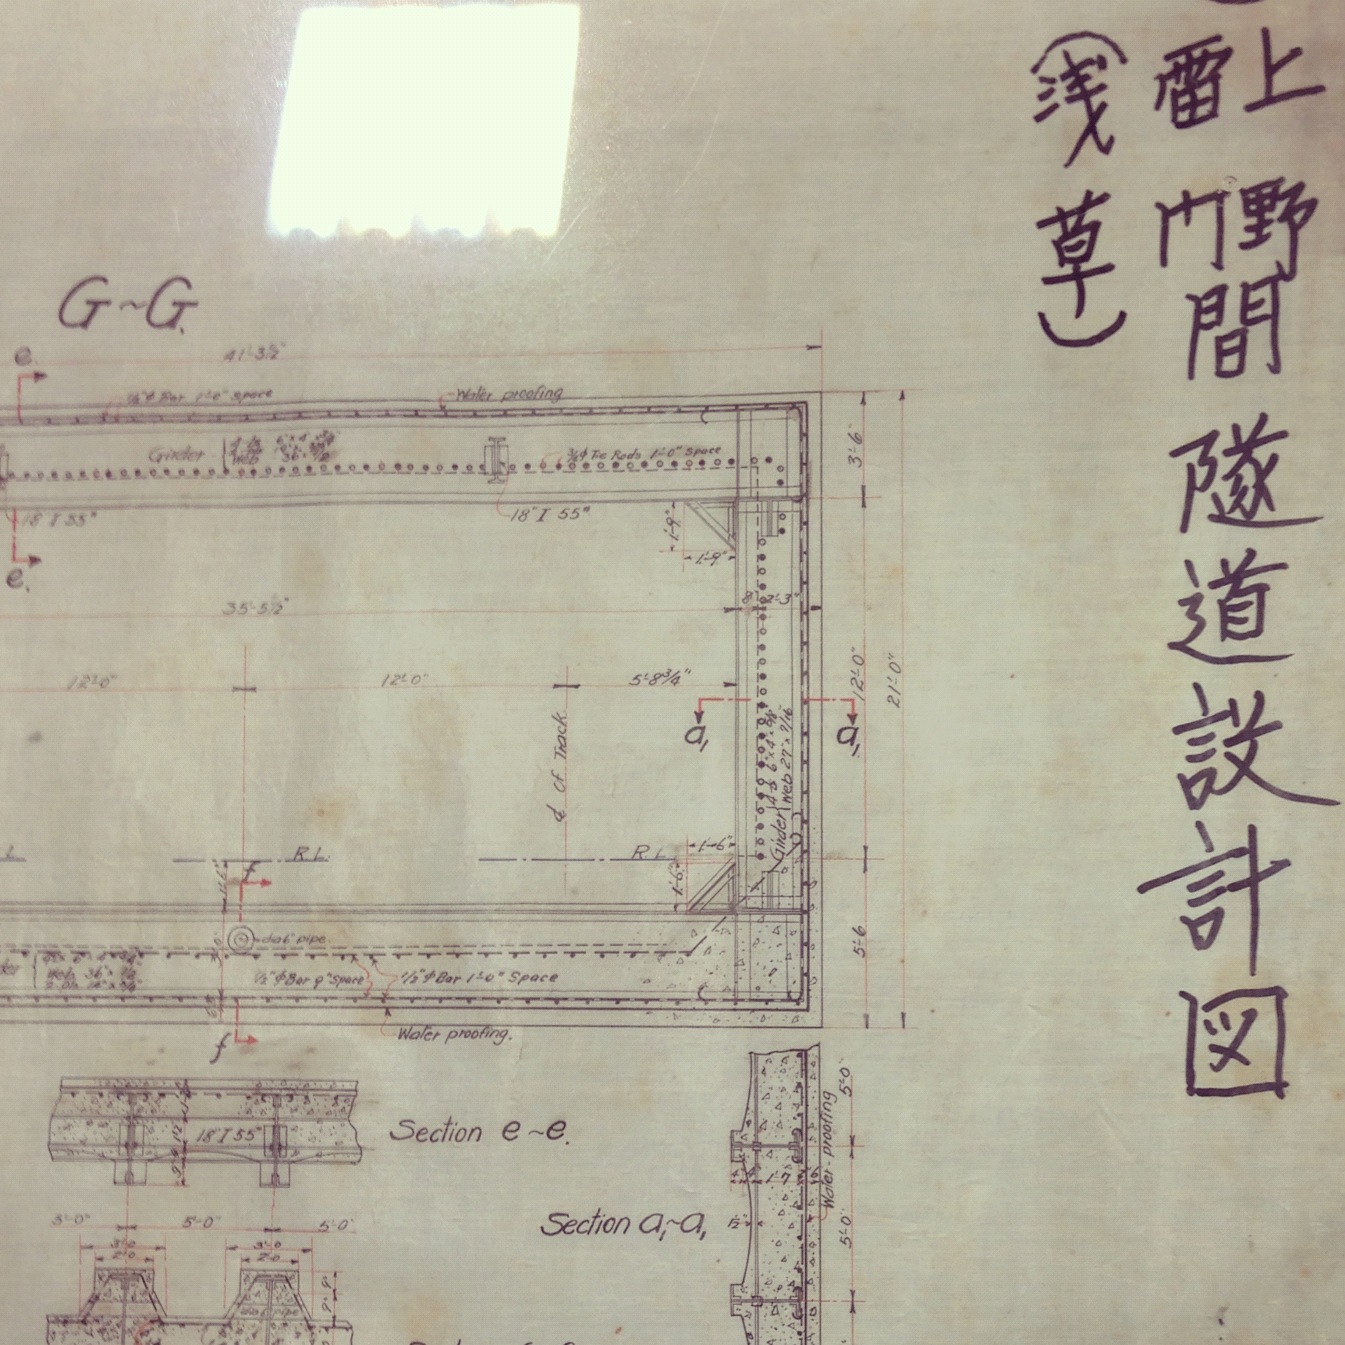 上野間隧道設計図
雷門
(浅草)
G~G.
41'-3½"
e.
½"φ Bar 1'-0" Space
Water proofing
Girder
¾φ Tie Rods 1'-0" Space
3'-6"
18" I 55"
18" I 55"
1'-9"
1'-9"
e.
35'-5½"
8"
2'-3"
12'-0"
12'-0"
5'-8¾"
12'-0"
21'-0"
a,
a,
℄ of Track
Girder
Web 27" x 7/16"
R.L.
R.L.
1'-6"
1'-6"
f
dia 6" pipe
½"φ Bar 9" Space
½"φ Bar 1'-0" Space
5'-6
Water proofing.
f
Section e~e.
18" I 55"
5'-0"
Water-proofing
Section a,~a,
5'-0"
5'-0"
5'-0"
5'-0"
3'-0
3'-0
2'-0
2'-0